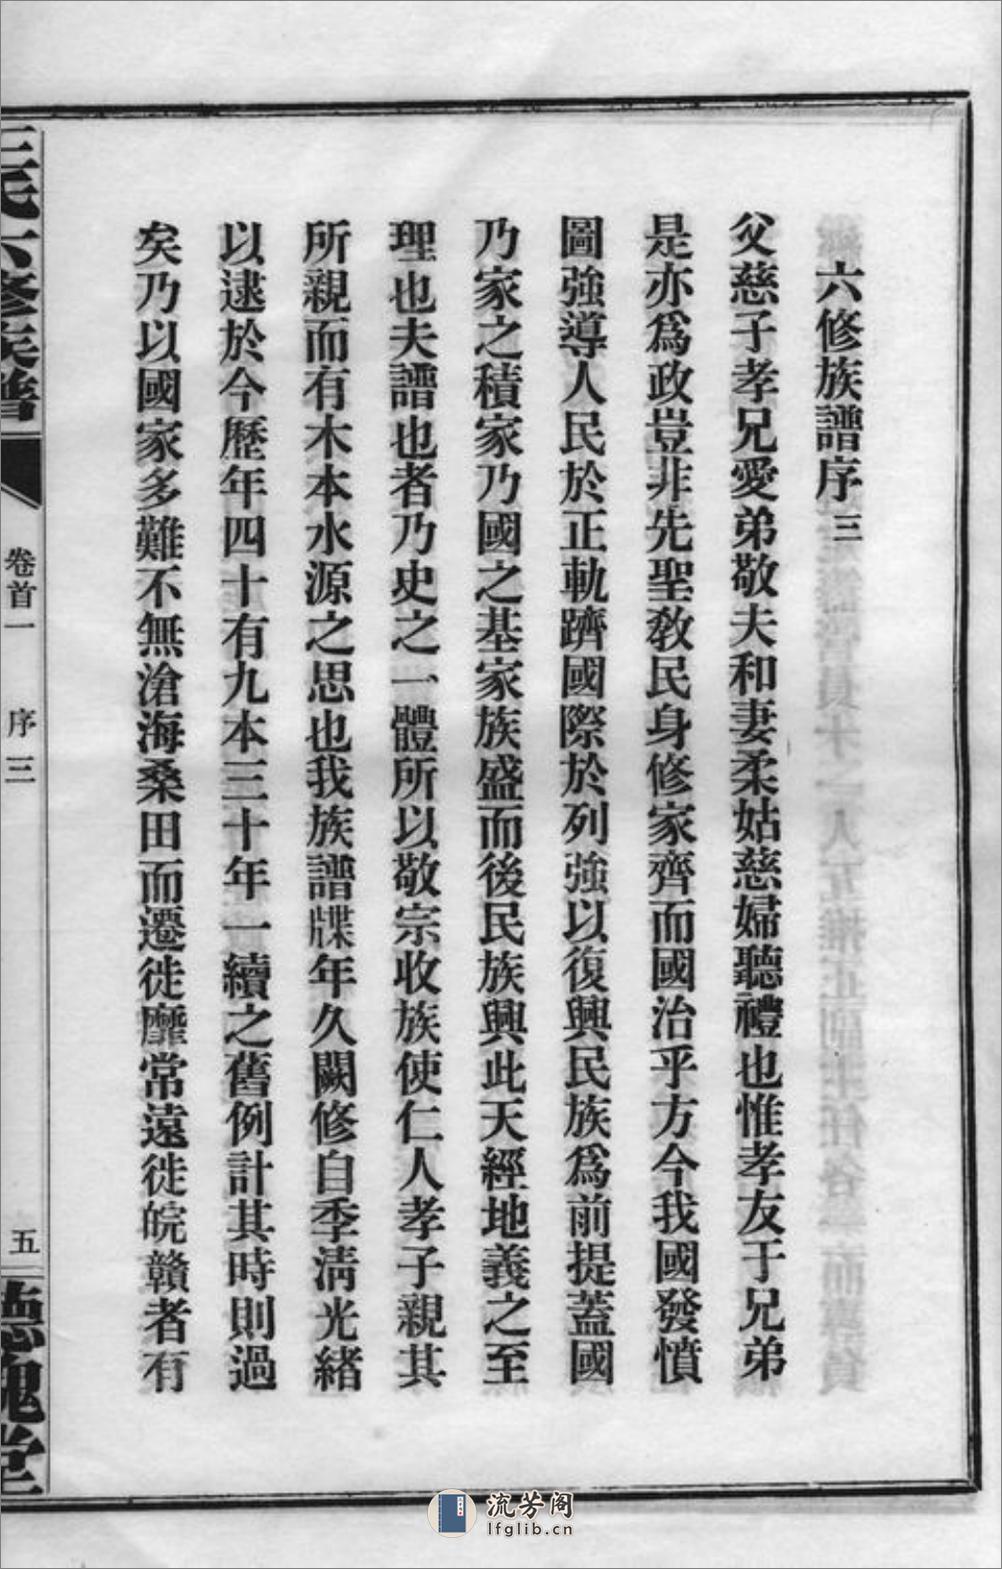 六修族譜序三
父慈子孝兄愛弟敬夫和妻柔姑慈婦聽禮也惟孝友于兄弟
是亦爲政豈非先聖敎民身修家齊而國治乎方今我國發憤
圖強導人民於正軌躋國際於列強以復興民族爲前提蓋國
乃家之積家乃國之基家族盛而後民族興此天經地義之至
理也夫譜也者乃史之一體所以敬宗收族使仁人孝子親其
所親而有木本水源之思也我族譜牒年久闕修自季淸光緒
以逮於今歷年四十有九本三十年一續之舊例計其時則過
矣乃以國家多難不無滄海桑田而遷徙靡常遠徙皖贛者有
王氏六修族譜
卷首一
序三
五
德槐堂
流芳阁
lfglib.cn